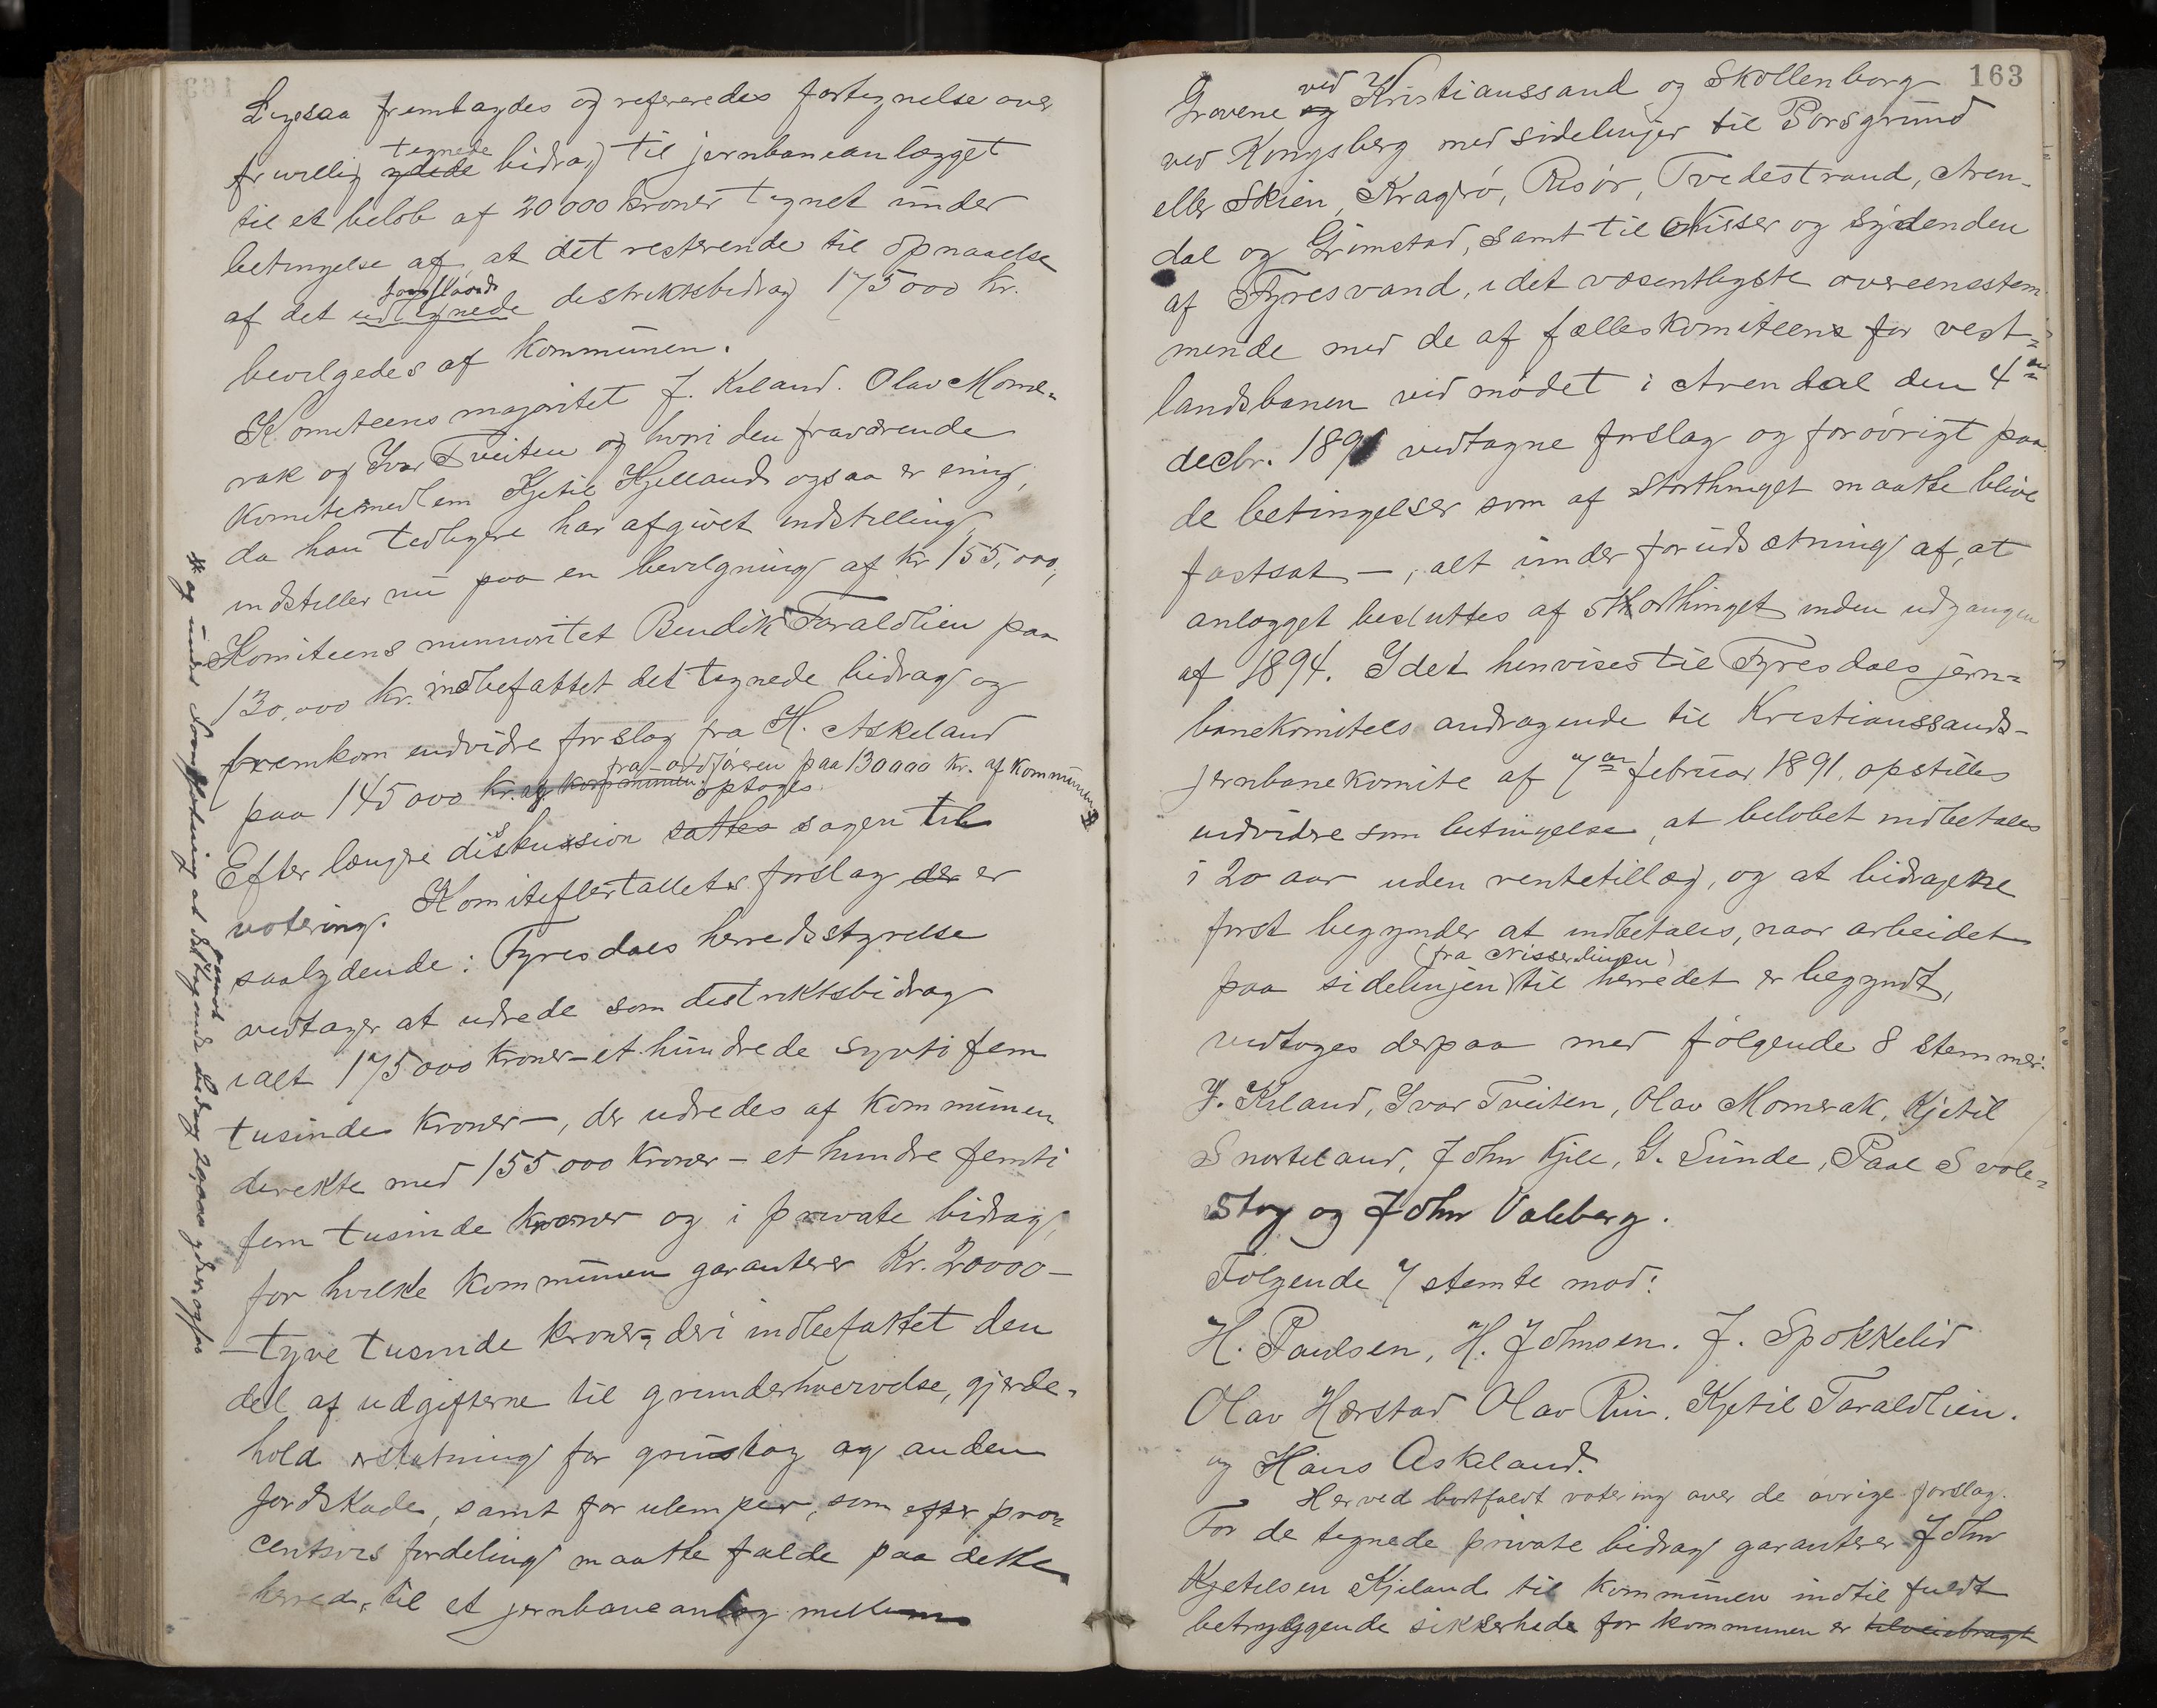 Ligesaa fremlagdes og refereredes fortegnelse over
frivillig ydede tegnede bidrag til jernbaneanlægget
til et beløb af 20000 kroner tegnet under
betingelse af, at det resterende til opnaaelse
af det udlignede foreslaaede distriktsbidrag 175000 kr.
bevilgedes af kommunen.
Komiteens majoritet J. Kiland. Olav Mome-
rak og Ivar Tveiten og hvori den fraværende
komitemedlem Kjetil Kjelland ogsaa er enig,
da han tidligere har afgivet indstilling,
indstiller nu paa en bevilgning af kr 155,000,
Komiteens minoritet Bendik Taraldlien paa
130,000 kr. indbefattet det tegnede bidrag og
fremkom endvidre forslag fra H. Askeland
paa 145000 kr. af kommunen. fra ordføreren paa 130000 kr. af kommunen
Efter længre diskussion sattes optoges sagen til
votering. Komiteflertallets forslag der er
saalydende: Tyresdals herredsstyrelse
vedtager at udrede som distriktsbidrag
ialt 175000 kroner – et hundrede sytti fem
tusinde kroner –, der udredes af kommunen
direkte med 155000 kroner – et hundre femti
fem tusinde kroner og i private bidrag,
for hvilke kommunen garanterer Kr. 20000 –
– tyve tusinde kroner –, deri indbefattet den
del af udgifterne til grunderhvervelse, gjerde-
hold erstatning for grustag og anden
jordskade, samt for ulemper, som efter pro-
centvis fordeling maatte falde paa dette
herred, til et jernbaneanlæg mellem
og under forudsætning at det øvrige beløb 20,000
163
Grovene og ved Kristianssand og Skollenborg
ved Kongsberg med sidelinjer til Porsgrund
eller Skien, Kragerø, Risør, Tvedestrand, Aren-
dal og Grimstad, samt til Nisser og Sydenden
af Fyresvand, i det væsentligste overensstem-
mende med de af fælleskomiteen for vest-
landsbanen ved mødet i Arendal den 4de
decbr. 1891 vedtagne forslag og forøvrigt paa
de betingelser som af storthinget maatte blive
fastsat –, alt under forudsætning af, at
anlægget besluttes af storthinget inden udgangen
af 1894. Idet henvises til Tyresdals jern-
banekomites andragende til Kristianssands-
jernbanekomite af 7de februar 1891, opstilles
endvidre som betingelse, at beløbet indbetales
i 20 aar uden rentetillæg, og at bidragene
først begynder at indbetales, naar arbeidet
paa sidelinjen (fra Nisserlinjen) til herredet er begyndt,
vedtoges derpaa med følgende 8 stemmer:
J. Kiland, Ivar Tveiten, Olav Momrak, Kjetil
Snarteland, John Kjile, G. Sunde, Paal Svole-
stog og John Valeberg.
Følgende 7 stemte mod:
H. Paulsen, H. Johnsen. J. Spokkelid
Olav Hærstad Olav Rui. Kjetil Taraldlien.
og Hans Askeland.
Herved bortfaldt votering over de øvrige forslag.
For de tegnede private bidrag garanterer John
Kjetilsen Kjiland til kommunen indtil fuldt
betryggende sikkerhed for kommunen er tilveiebragt